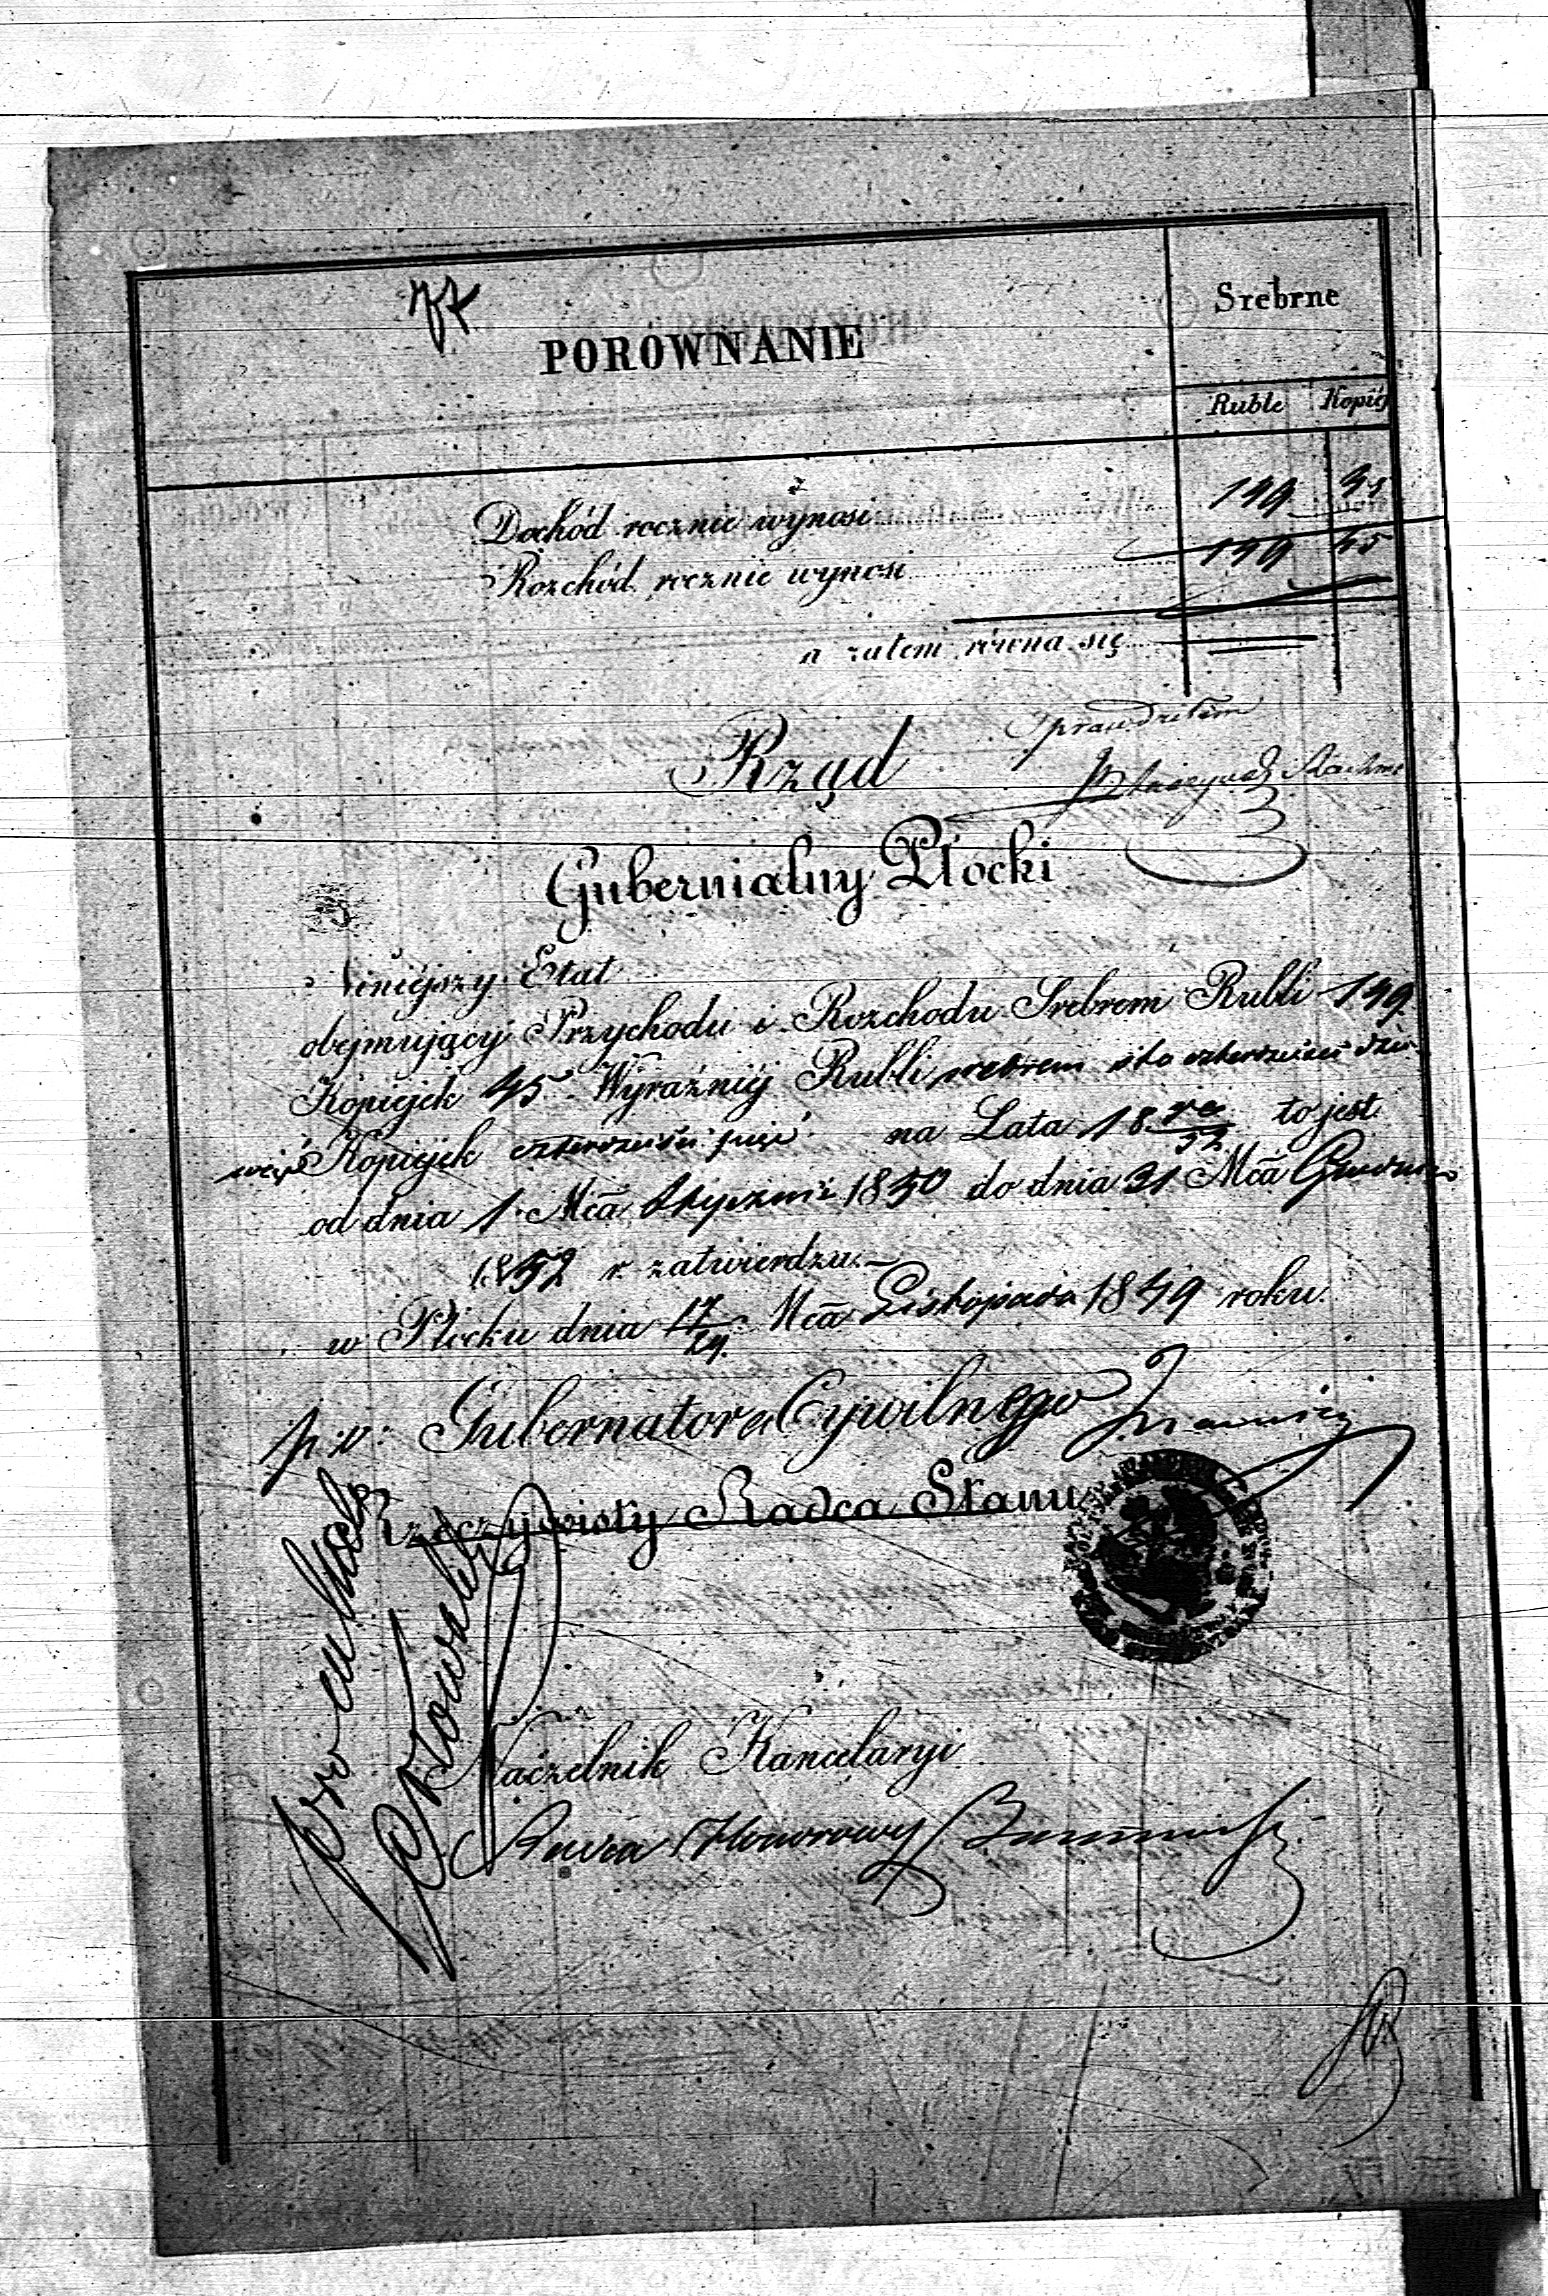 77
PORÓWNANIE
Srebrne
Ruble Kopiéj
Dochód rocznie wynosi 149 45
Rozchód rocznie wynosi 149 45
a zatem równa się
Sprawdziłem
Rząd
Gubernialny Płocki
Niniejszy Etat
obejmujący Przychodu i Rozchodu Srebrem Rubli 149
Kopiejek 45 Wyraźniej Rubli srebrem sto czterdzieści dzie-
więć Kopiejek czterdzieści pięć na Lata 18 50/52 to jest
od dnia 1 Mca Stycznia 1850 do dnia 31 Mca Grudnia
1852 r. zatwierdza.
w Płocku dnia 17/29 Mca Listopada 1849 roku
p.o. Gubernatora Cywilnego
Rzeczywisty Radca Stanu
Naczelnik Kancelaryi
Radca Honorowy